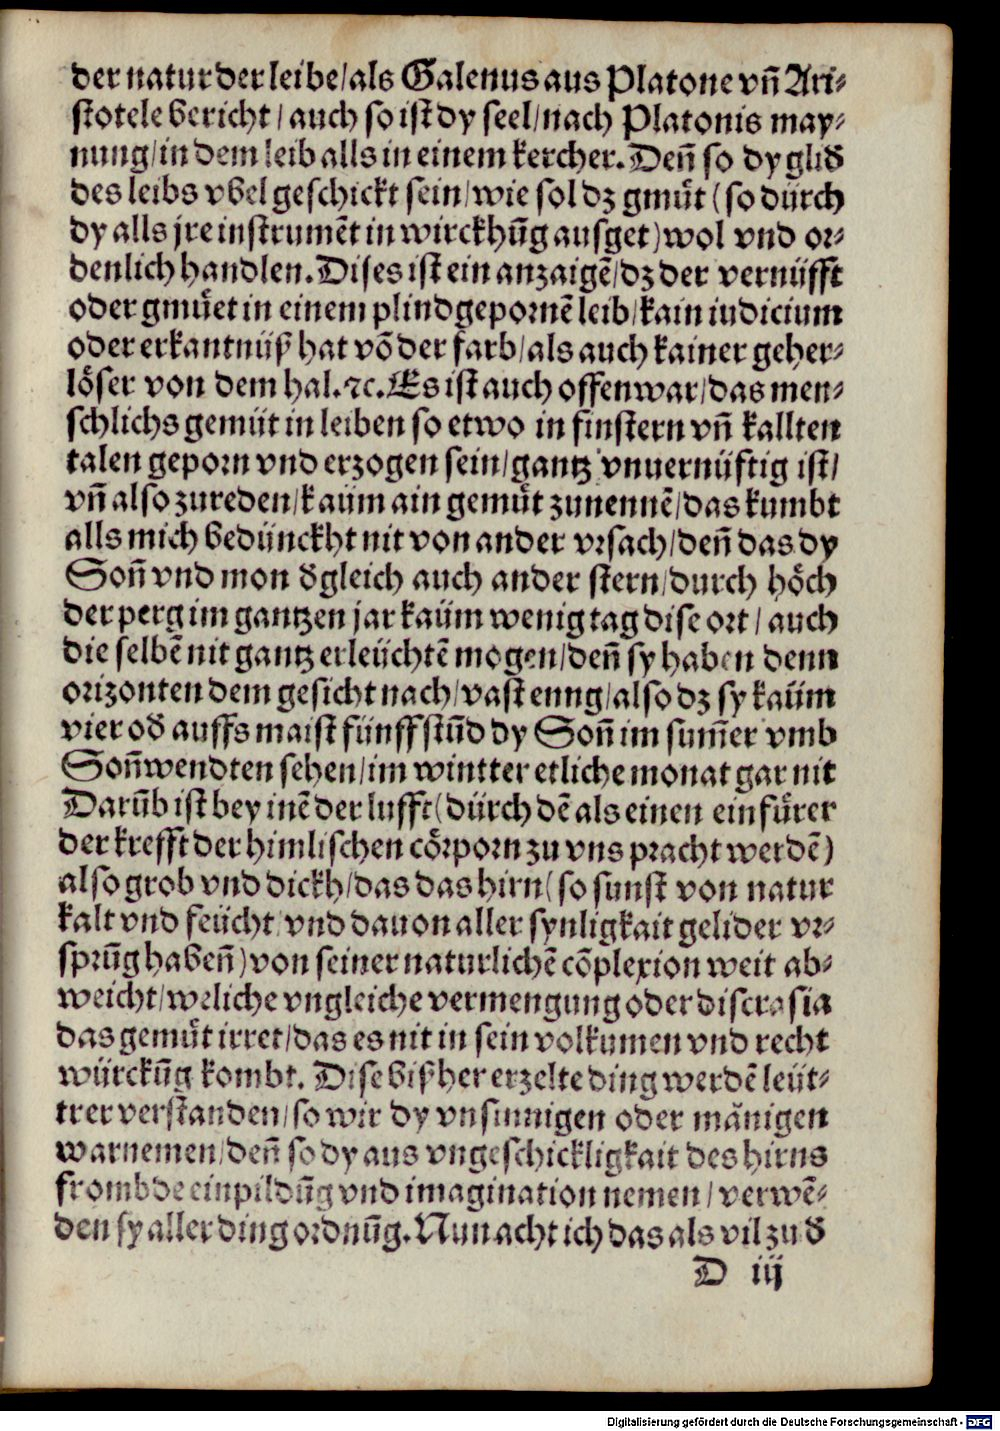 der natur der leibe/als Galenus aus Platone vñ Ari-
stotele bericht/auch so ist dy seel/nach Platonis may-
nung/in dem leib alls in einem kercher. Deñ so dy glid̕
des leibs vbel geschickt sein/wie sol dz gmuͤt (so dürch
dy alls jre instrumẽt in wirckhũg ausget) wol vnd or-
denlich handlen. Dises ist ein anzaigẽ/dz der vernüfft
oder gmuͤet in einem plindgepornẽ leib/kain iudicium
oder erkantnüß hat võ der farb/als auch kainer geher-
löser von dem hal.⁊c. Es ist auch offenwar/das men-
schlichs gemüt in leiben so etwo in finstern vñ kallten
talen geporn vnd erzogen sein/gantz vnuernüftig ist/
vñ also zureden/kaüm ain gemuͤt zunennẽ/das kumbt
alls mich bedünckht nit von ander vrsach/deñ das dy
Soñ vnd mon d̕gleich auch ander stern/durch höch
der perg im gantzen jar kaüm wenig tag dise ort/auch
die selbẽ nit gantz erleüchtẽ mogen/deñ sy haben denn
orizonten dem gesicht nach/vast enng/also dz sy kaüm
vier od̕ auffs maist fünff stũd dy Soñ im sum̃er vmb
Soñwendten sehen/im wintter etliche monat gar nit
Darũb ist bey inẽ der lufft (dürch dẽ als einen einfürer
der krefft der himlischen cörporn zu vns pracht werdẽ)
also grob vnd dickh/das das hirn (so sunst von natur
kalt vnd feücht/vnd dauon aller synligkait gelider vr-
sprũg habeñ) von seiner naturlichẽ cõplexion weit ab-
weicht/weliche vngleiche vermengung oder discrasia
das gemuͤt irret/das es nit in sein volkumen vnd recht
würckũg kombt. Dise bißher erzelte ding werdẽ leüt-
trer verstanden/so wir dy vnsinnigen oder mänigen
warnemen/deñ so dy aus vngeschickligkait des hirns
frombde einpildũg vnd imagination nemen/verwẽ-
den sy aller ding ordnũg. Nun acht ich das als vil zu d̕
D iij
Digitalisierung gefördert durch die Deutsche Forschungsgemeinschaft - DFG